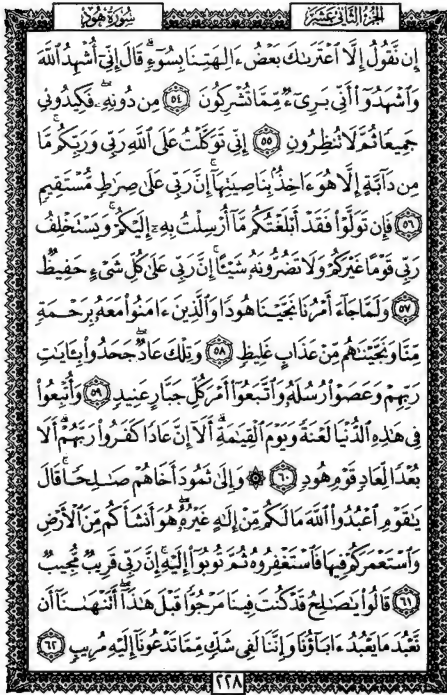 سُورَةُ هُودٍ الجُزْءُ الثَّانِي عَشَرَ
إِن نَّقُولُ إِلَّا ٱعْتَرَىٰكَ بَعْضُ ءَالِهَتِنَا بِسُوٓءٍۗ قَالَ إِنِّيٓ أُشْهِدُ ٱللَّهَ
وَٱشْهَدُوٓا۟ أَنِّي بَرِيٓءٌ مِّمَّا تُشْرِكُونَ ٥٤ مِن دُونِهِۦۖ فَكِيدُونِي
جَمِيعًا ثُمَّ لَا تُنظِرُونِ ٥٥ إِنِّي تَوَكَّلْتُ عَلَى ٱللَّهِ رَبِّي وَرَبِّكُمۚ مَّا
مِن دَآبَّةٍ إِلَّا هُوَ ءَاخِذٌۢ بِنَاصِيَتِهَآۚ إِنَّ رَبِّي عَلَىٰ صِرَٰطٍ مُّسْتَقِيمٍ
٥٦ فَإِن تَوَلَّوْا۟ فَقَدْ أَبْلَغْتُكُم مَّآ أُرْسِلْتُ بِهِۦٓ إِلَيْكُمْۚ وَيَسْتَخْلِفُ
رَبِّي قَوْمًا غَيْرَكُمْ وَلَا تَضُرُّونَهُۥ شَيْـًٔاۚ إِنَّ رَبِّي عَلَىٰ كُلِّ شَيْءٍ حَفِيظٌ
٥٧ وَلَمَّا جَآءَ أَمْرُنَا نَجَّيْنَا هُودًا وَٱلَّذِينَ ءَامَنُوا۟ مَعَهُۥ بِرَحْمَةٍ
مِّنَّا وَنَجَّيْنَٰهُم مِّنْ عَذَابٍ غَلِيظٍ ٥٨ وَتِلْكَ عَادٌۖ جَحَدُوا۟ بِـَٔايَٰتِ
رَبِّهِمْ وَعَصَوْا۟ رُسُلَهُۥ وَٱتَّبَعُوٓا۟ أَمْرَ كُلِّ جَبَّارٍ عَنِيدٍ ٥٩ وَأُتْبِعُوا۟
فِي هَٰذِهِ ٱلدُّنْيَا لَعْنَةً وَيَوْمَ ٱلْقِيَٰمَةِۗ أَلَآ إِنَّ عَادًا كَفَرُوا۟ رَبَّهُمْۗ أَلَا
بُعْدًا لِّعَادٍ قَوْمِ هُودٍ ٦٠ ۞ وَإِلَىٰ ثَمُودَ أَخَاهُمْ صَٰلِحًاۚ قَالَ
يَٰقَوْمِ ٱعْبُدُوا۟ ٱللَّهَ مَا لَكُم مِّنْ إِلَٰهٍ غَيْرُهُۥۖ هُوَ أَنشَأَكُم مِّنَ ٱلْأَرْضِ
وَٱسْتَعْمَرَكُمْ فِيهَا فَٱسْتَغْفِرُوهُ ثُمَّ تُوبُوٓا۟ إِلَيْهِۚ إِنَّ رَبِّي قَرِيبٌ مُّجِيبٌ
٦١ قَالُوا۟ يَٰصَٰلِحُ قَدْ كُنتَ فِينَا مَرْجُوًّا قَبْلَ هَٰذَآۖ أَتَنْهَىٰنَآ أَن
نَّعْبُدَ مَا يَعْبُدُ ءَابَآؤُنَا وَإِنَّنَا لَفِي شَكٍّ مِّمَّا تَدْعُونَآ إِلَيْهِ مُرِيبٍ ٦٢
٢٢٨